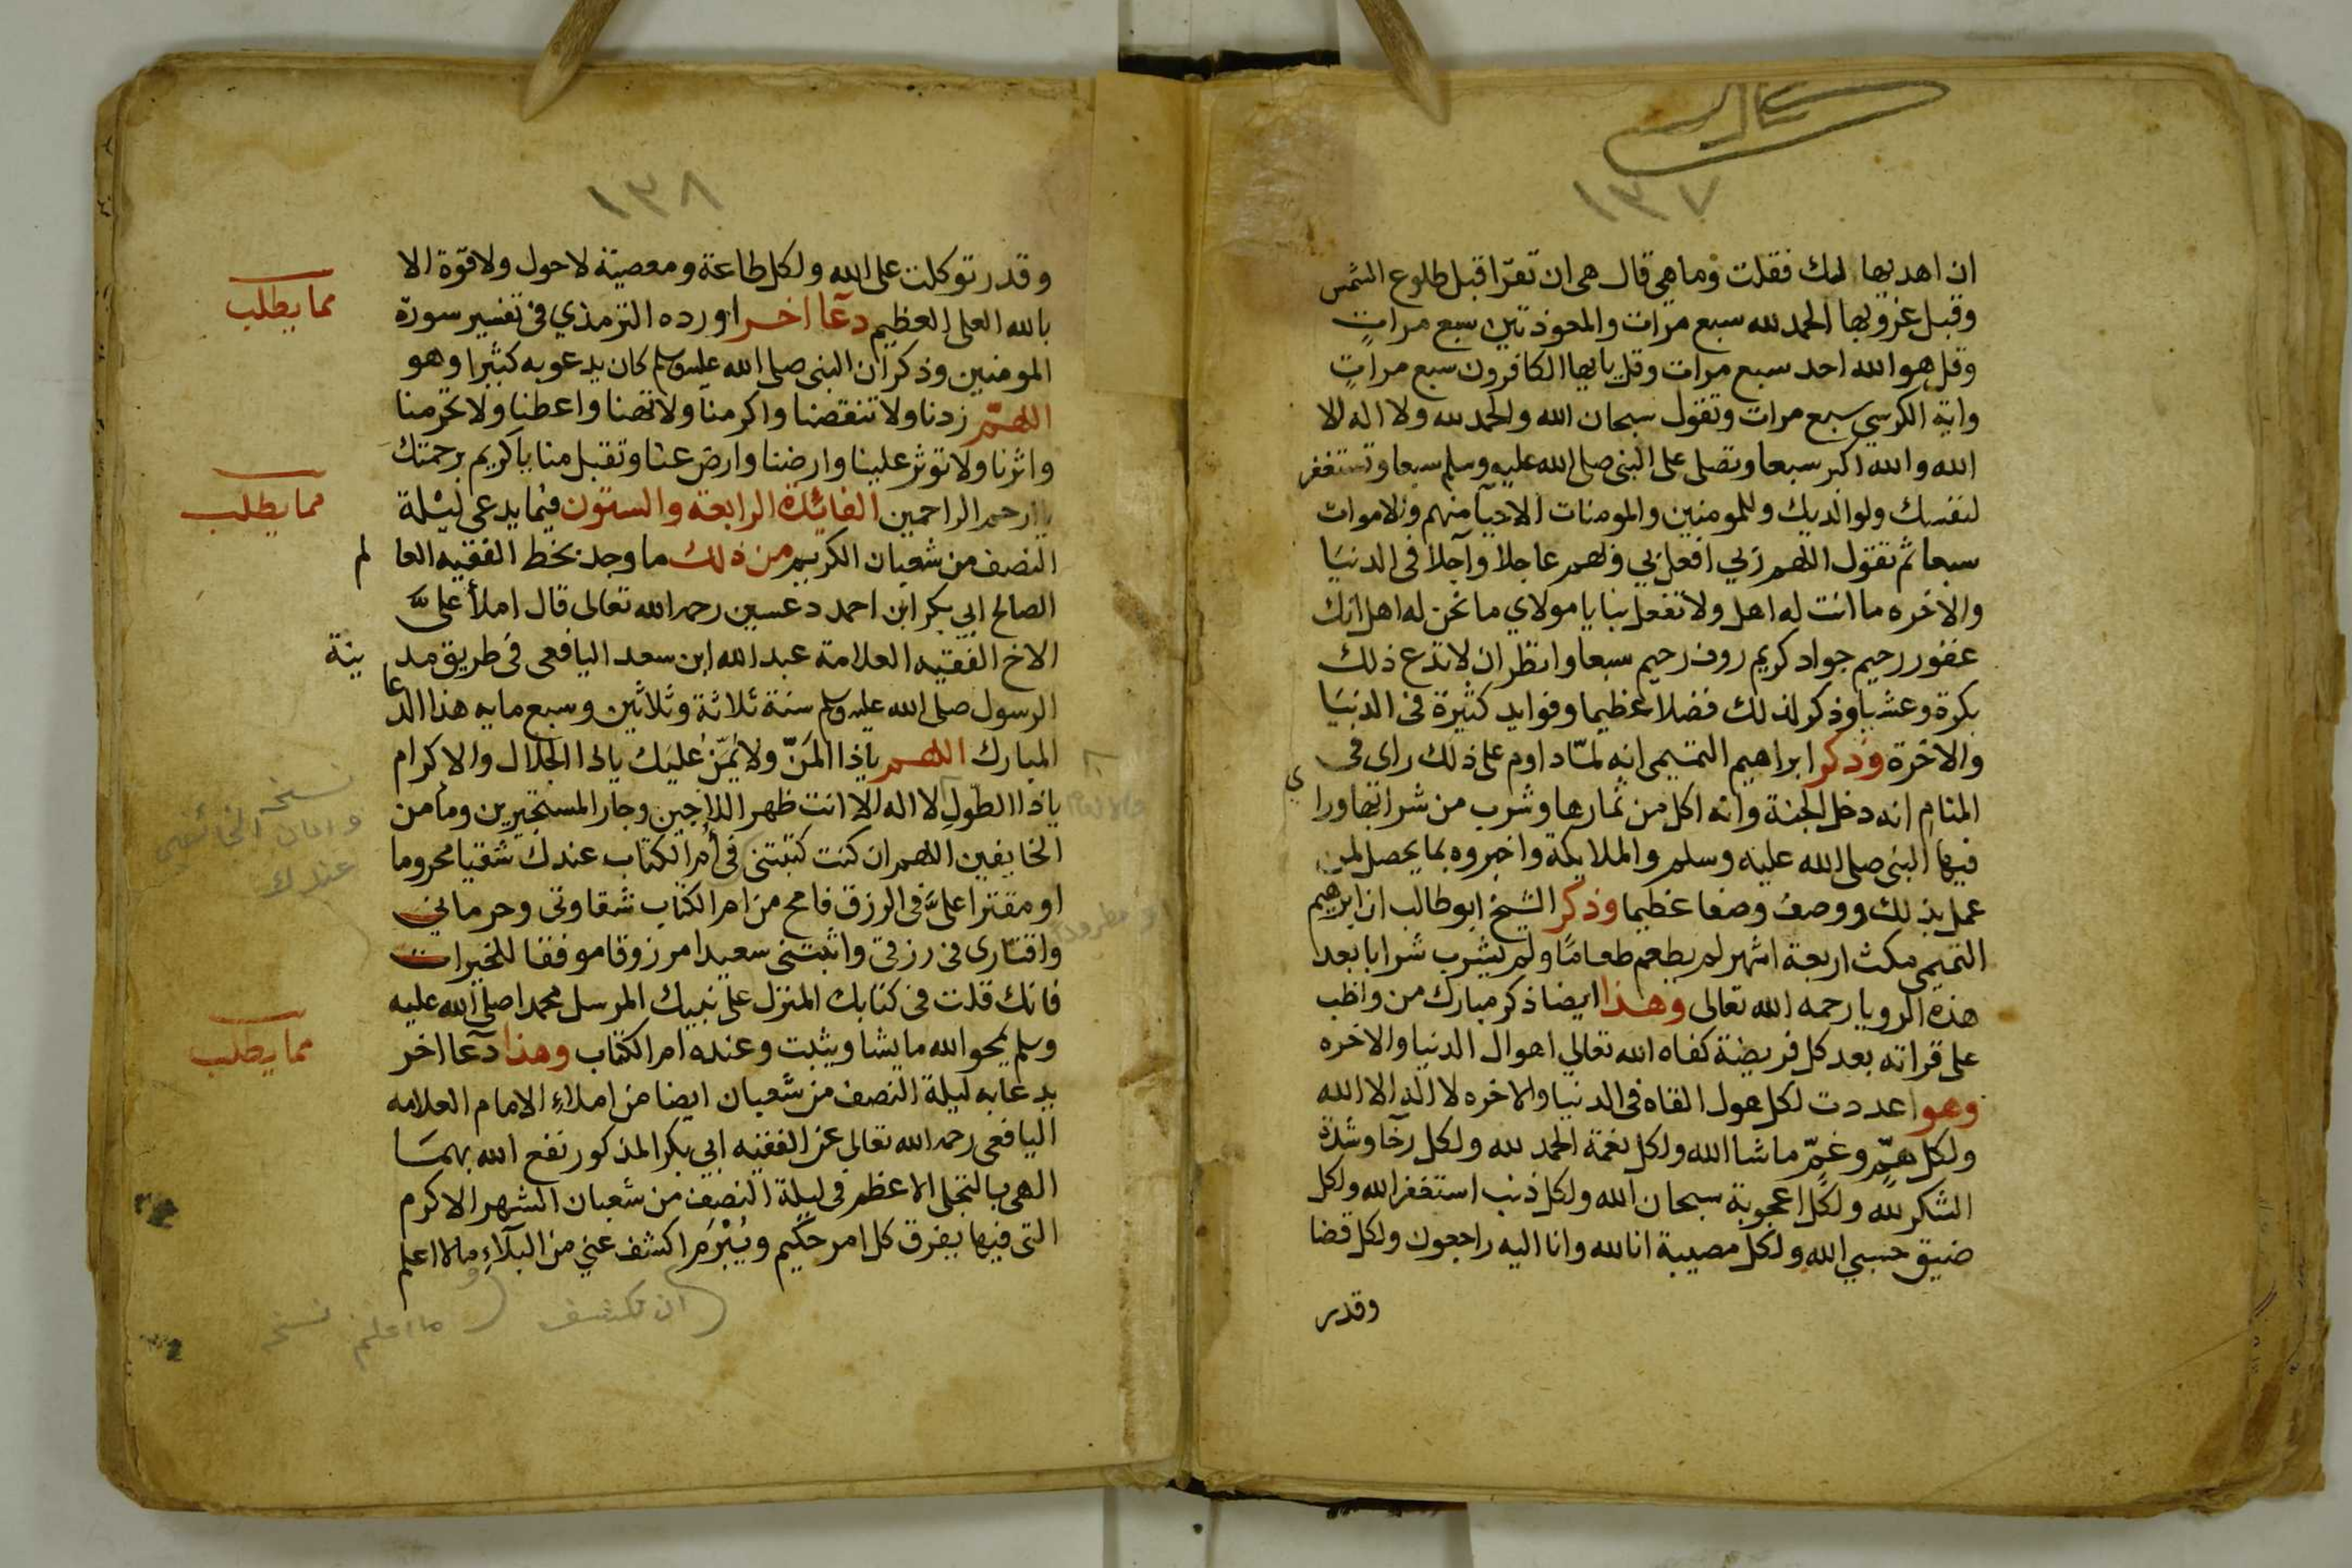 ١٣٧
ان اهديها لك فقلت وما هي قال هى ان تقرا قبل طلوع الشمس
وقبل غروبها الحمد لله سبع مرات والمعوذتين سبع مراتٍ
وقل هو الله احد سبع مرات وقل يايها الكافرون سبع مراتٍ
واية الكرسي سبع مرات وتقول سبحان الله والحمد لله ولا اله الا
الله والله اكبر سبعا وتصلى على النبى صلى الله عليه وسلم سبعا وتستغفر
لنفسك ولوالديك وللمومنين والمومنات الاحيآ منهم والاموات
سبعا ثم تقول اللهم ربي افعل بي وبهم عاجلا وآجلا فى الدنيا
والاخره ما انت له اهل ولا تفعل بنا يا مولاي ما نحن له اهل انك
غفور رحيم جواد كريم روف رحيم سبعا وانظر ان لا تدع ذلك
بكرة وعشيا وذكر لذلك فضلا عظيما وفوايد كثيرة فى الدنيا
والاخرة وذكر ابراهيم التيمى انه لمّا داوم على ذلك راى فى
المنام انه دخل الجنة وانه اكل من ثمارها وشرب من شرابها وراى
فيها النبى صلى الله عليه وسلم والملايكة واخبروه بما يحصل لمن
عمل بذلك ووصف وصفا عظيما وذكر الشيخ ابو طالب ان ابرهيم
التميمى مكث اربعة اشهر لم يطعم طعامًا ولم يشرب شرابا بعد
هذه الرويا رحمه الله تعالى وهذا ايضا ذكر مبارك من واظب
على قراته بعد كل فريضة كفاه الله تعالي اهوال الدنيا والاخره
وهو اعددت لكل هول القاه فى الدنيا والاخره لا اله الا الله
ولكل همّ وغمّ ما شا الله ولكل نعمة الحمد لله ولكل رخآ وشدة
الشكر لله ولكل اعجوبة سبحان الله ولكل ذنب استغفر الله ولكل
ضيق حسبي الله ولكل مصيبة انا لله وانا اليه راجعون ولكل قضا
وقدر
١٣٨
وقدر توكلت على الله ولكل طاعة ومعصية لا حول ولا قوّة الا
بالله العلى العظيم دعآ اخر اورده الترمذي فى تفسير سورة
مما يطلب
المومنين وذكر ان النبى صلى الله عليه وسلم كان يدعو به كثيرا وهو
اللهمّ زدنا ولا تنقصنا واكرمنا ولا تهنا واعطنا ولا تحرمنا
واثرنا ولا توثر علينا وارضنا وارض عنا وتقبل منا يا كريم برحمتك
يا ارحم الراحمين الفائدة الرابعة والستون فيما يدعى ليلة
مما يطلب
النصف من شعبان الكريم من ذلك ما وجد بخط الفقيه العالم
الصالح ابي بكر ابن احمد دعسين رحمه الله تعالى قال املأ علىَّ
الاخ الفقيه العلامة عبد الله ابن سعد اليافعى فى طريق مدينة
الرسول صلى الله عليه وسلم سنة ثلاثة وثلاثين وسبع مايه هذا الدعا
المبارك اللهم ياذا المنّ ولا يُمَنُّ عليك ياذا الجلال والاكرام
ياذا الطول لا اله الا انت ظهر اللاجين وجار المستجيرين ومامن
الخايفين اللهم ان كنت كتبتنى فى أم الكتاب عندك شقيا محروما
او مقترا علىَّ فى الرزق فامح من ام الكتاب شقاوتى وحرماني
واقتارى فى رزقى واثبتنى سعيدا مرزوقا موفقا للخيرات
فانك قلت فى كتابك المنزل على نبيك المرسل محمدا صلى الله عليه
وسلم يمحو الله ما يشا ويثبت وعنده ام الكتاب وهذا دعآ اخر
مما يطلب
يدعا به ليلة النصف من شعبان ايضا من املاءِ الامام العلامه
اليافعى رحمه الله تعالى عن الفقيه ابي بكر المذكور نفع الله بهما
الهى بالتجلى الاعظم فى ليلة النصف من شعبان الشهر الاكرم
التى فيها يفرق كل امر حكيم ويُبْرَم اكشف عني من البلآءِ مالا اعلم
نسخه
وامان الخائفين
عندك
ان تكشف
ما اعلم
نسخه